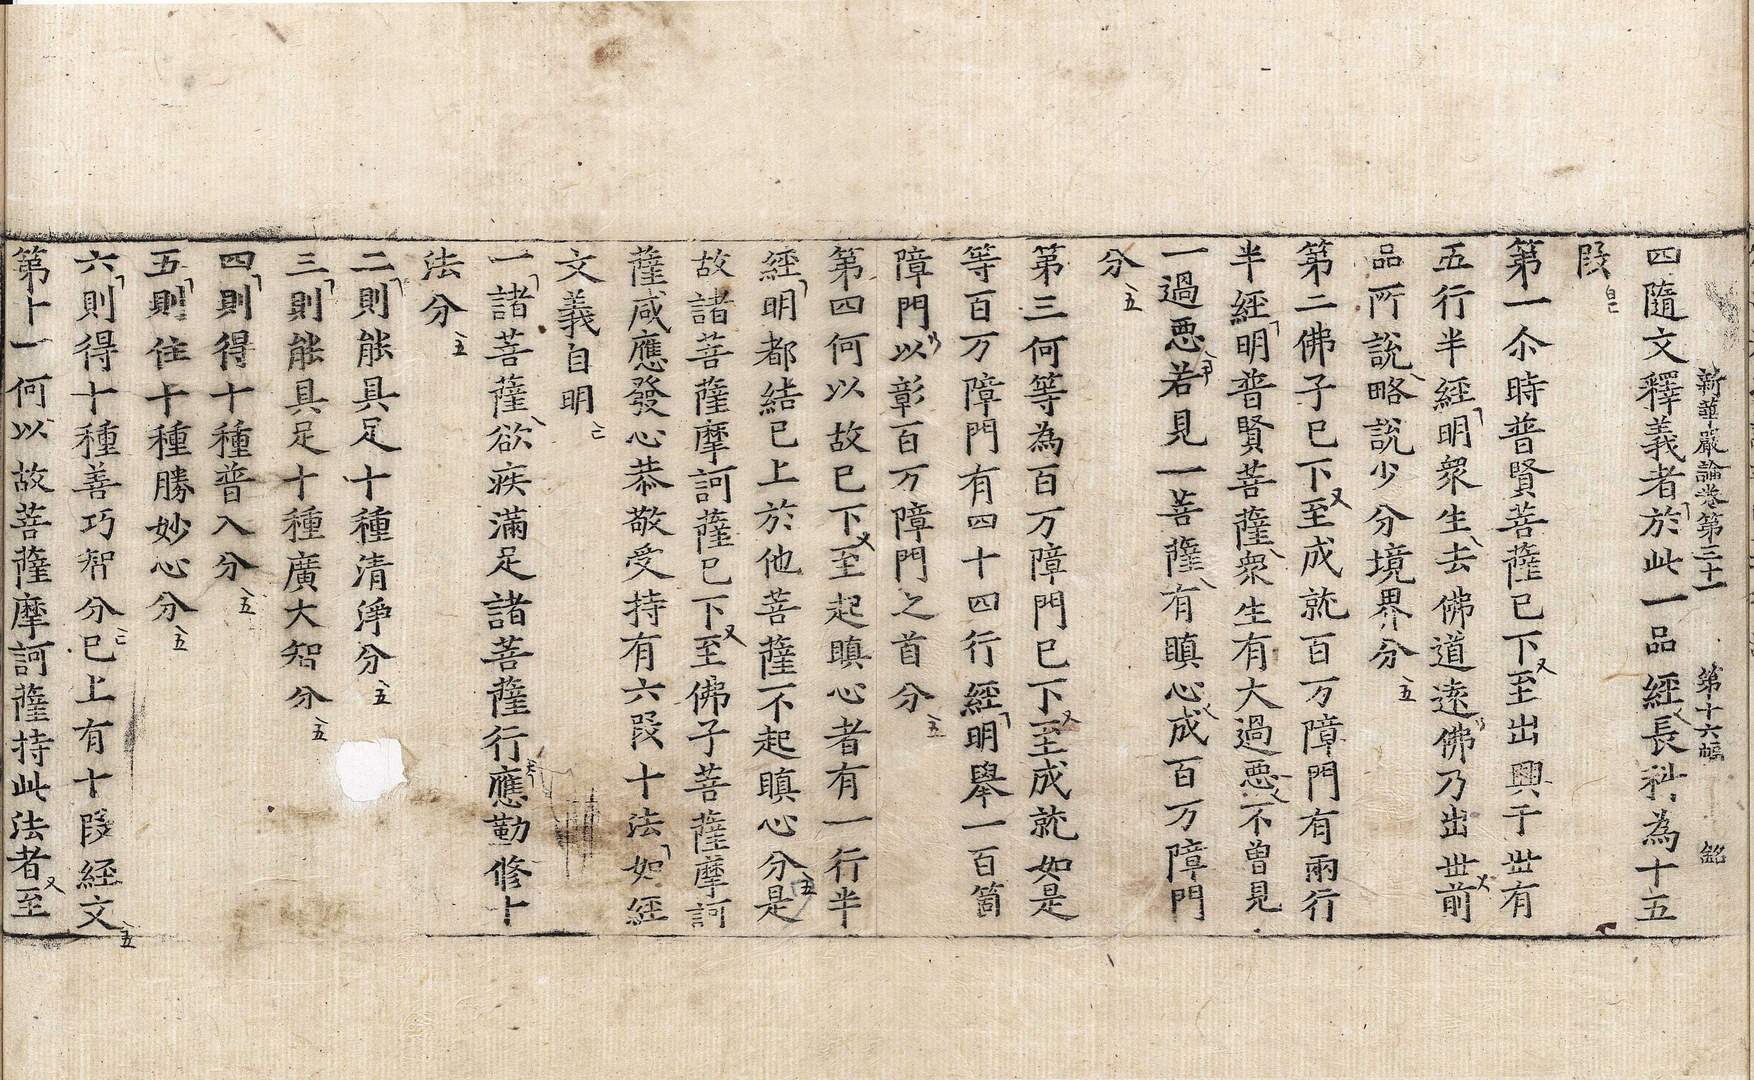 新華嚴論卷第三十一 第十六幅 銘
四隨文釋義者於此一品經長科為十五
段
第一尒時普賢菩薩已下至出興于世有
五行半經明衆生去佛道遠佛乃出世前
品所說略說少分境界分
第二佛子已下至成就百万障門有兩行
半經明普賢菩薩衆生有大過悪不曽見
一過悪若見一菩薩有瞋心成百万障門
分
第三何等為百万障門已下至成就如是
等百万障門有四十四行經明舉一百箇
障門以彰百万障門之首分
第四何以故已下至起瞋心者有一行半
經明都結已上於他菩薩不起瞋心分是
故諸菩薩摩訶薩已下至佛子菩薩摩訶
薩咸應發心恭敬受持有六段十法如經
文義自明
一諸菩薩欲疾滿足諸菩薩行應勤修十
法分
二則能具足十種清淨分
三則能具足十種廣大智分
四則得十種普入分
五則住十種勝妙心分
六則得十種善巧智分已上有十段經文
第十一何以故菩薩摩訶薩持此法者至